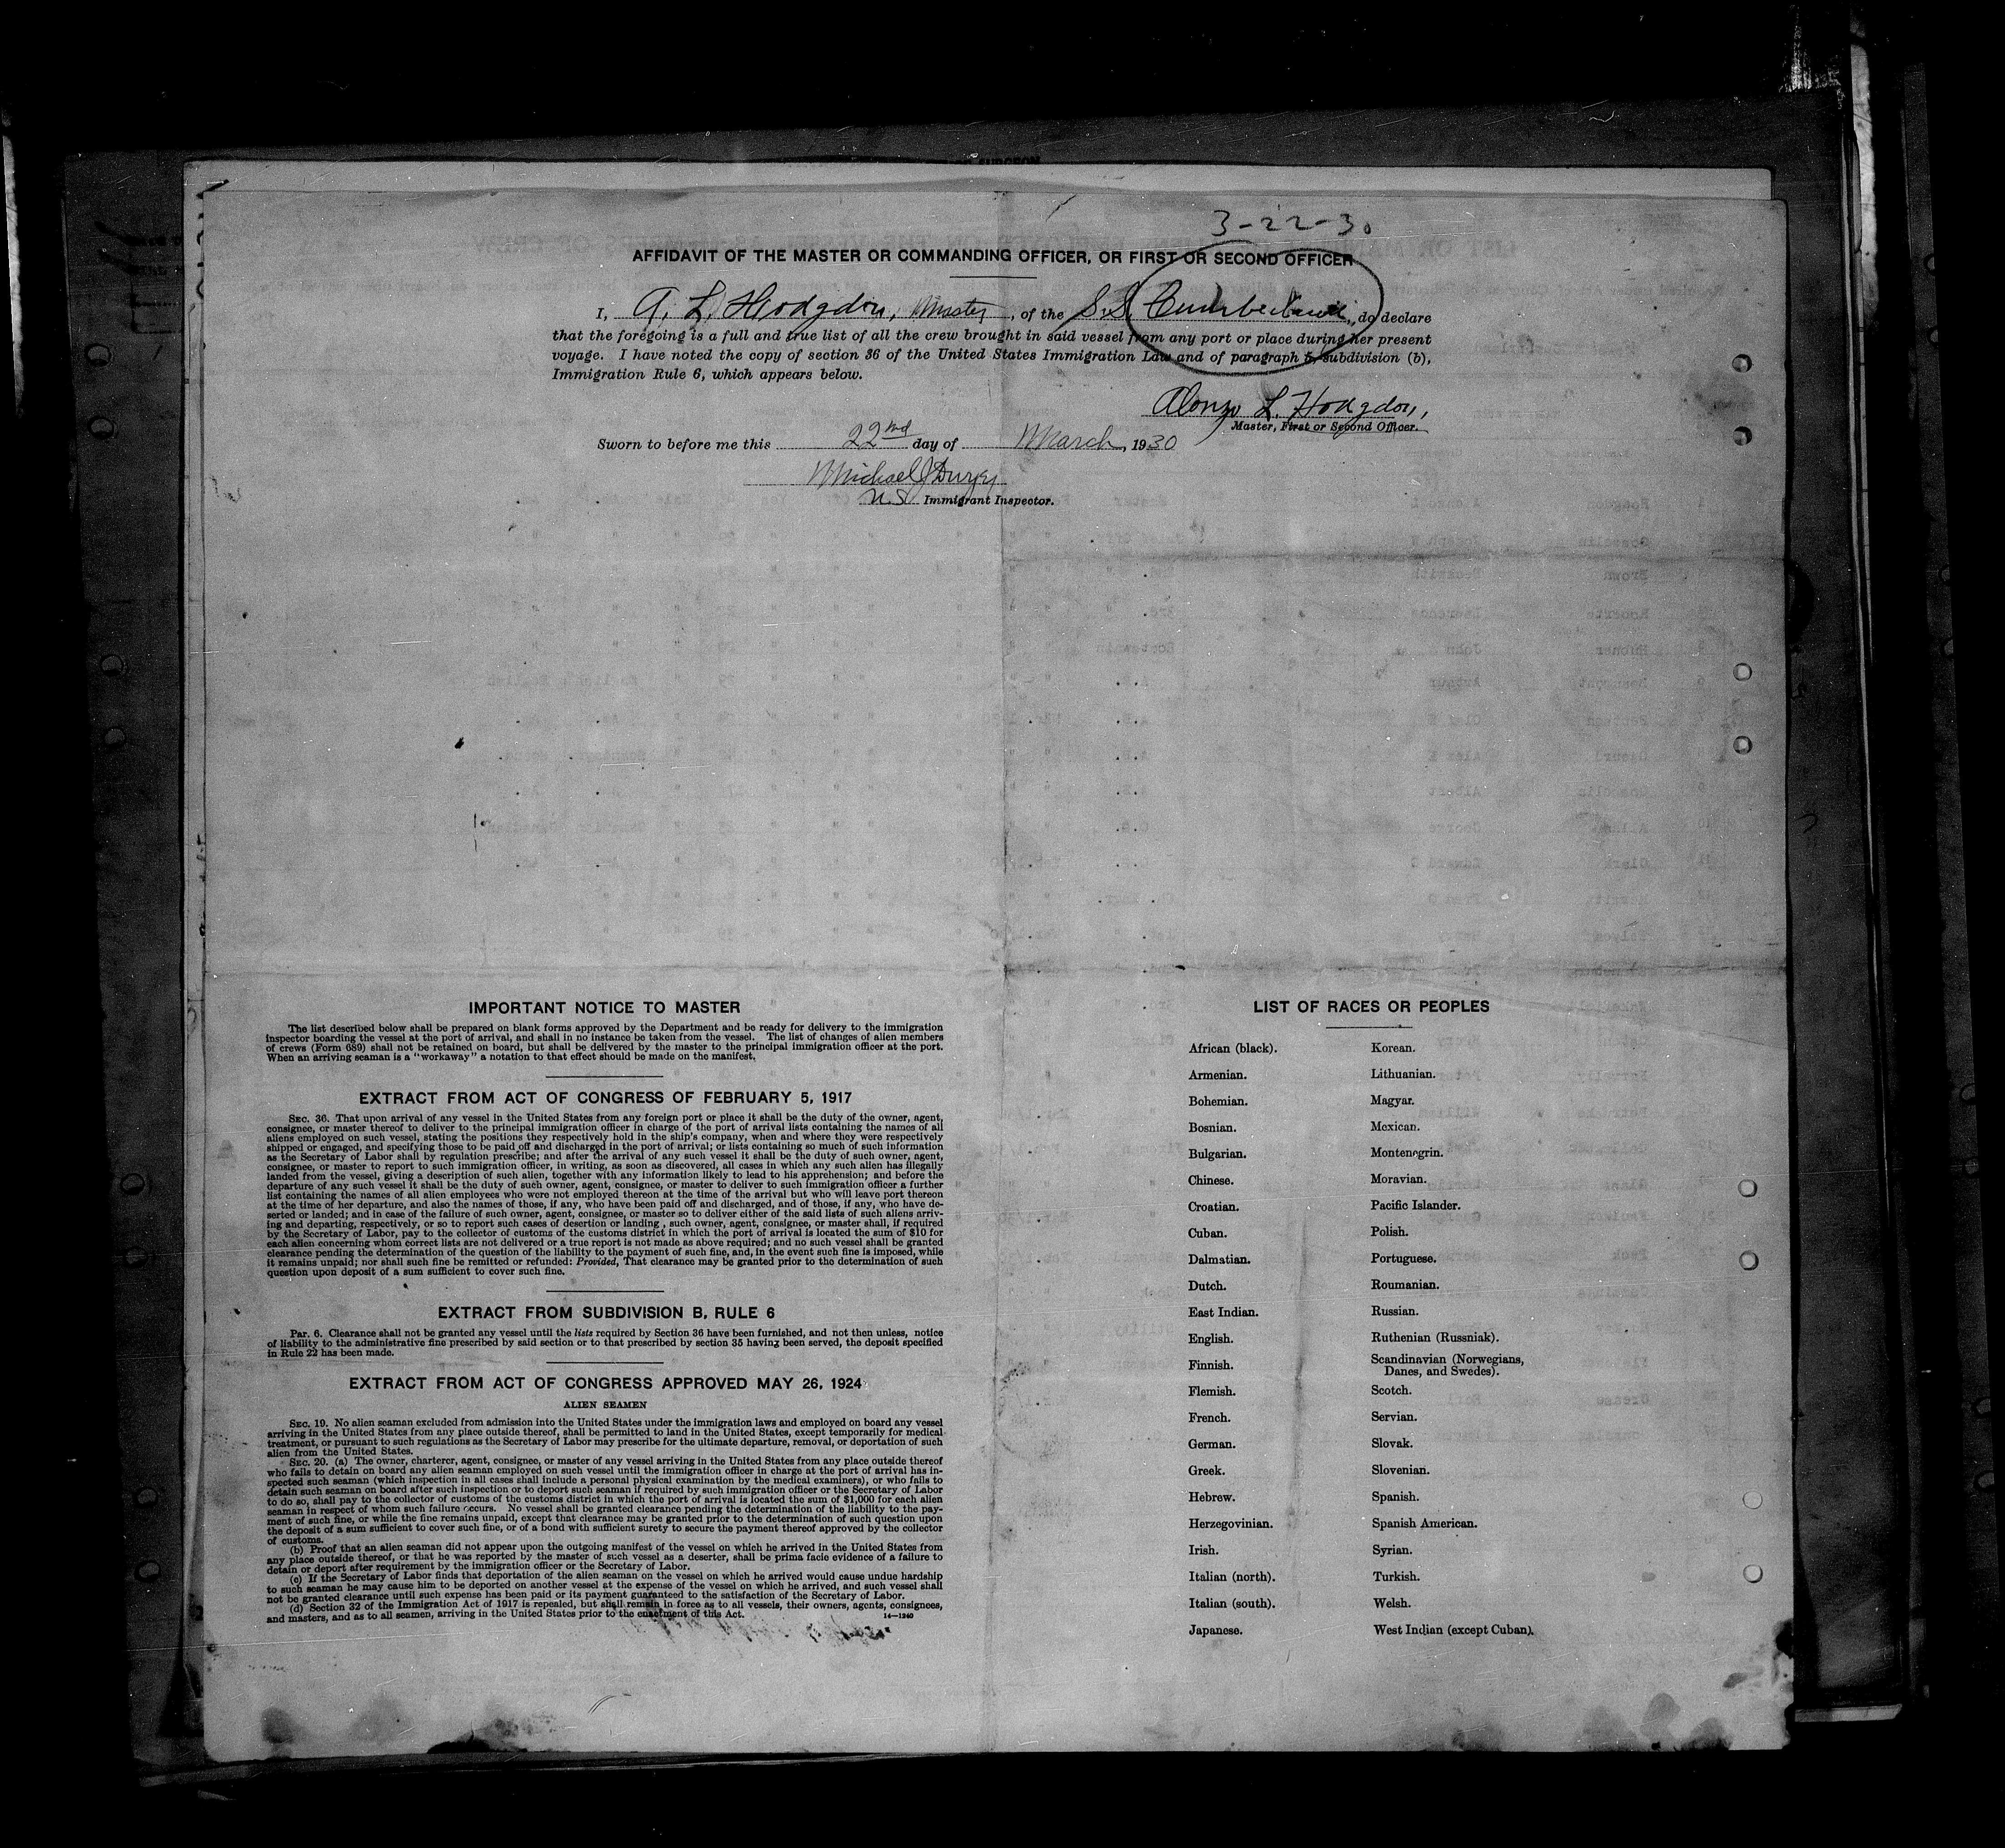 3-22-30
AFFIDAVIT OF THE MASTER OR COMMANDING OFFICER, OR FIRST OR SECOND OFFICER
I, A. L. Hodgdon, Master, of the S.S. Cumberland, do declare
that the foregoing is a full and true list of all the crew brought in said vessel from any port or place during her present
voyage. I have noted the copy of section 36 of the United States Immigration Law and of paragraph 5, subdivision (b),
Immigration Rule 6, which appears below.
Alonzo L. Hodgdon,
Master, First or Second Officer.
Sworn to before me this 22nd day of March, 1930
Michael J
U.S. Immigrant Inspector.
IMPORTANT NOTICE TO MASTER
The list described below shall be prepared on blank forms approved by the Department and be ready for delivery to the immigration
inspector boarding the vessel at the port of arrival, and shall in no instance be taken from the vessel. The list of changes of alien members
of crews (Form 689) shall not be retained on board, but shall be delivered by the master to the principal immigration officer at the port.
When an arriving seaman is a "workaway" a notation to that effect should be made on the manifest.
EXTRACT FROM ACT OF CONGRESS OF FEBRUARY 5, 1917
SEC. 36. That upon arrival of any vessel in the United States from any foreign port or place it shall be the duty of the owner, agent,
consignee, or master thereof to deliver to the principal immigration officer in charge of the port of arrival lists containing the names of all
aliens employed on such vessel, stating the positions they respectively hold in the ship's company, when and where they were respectively
shipped or engaged, and specifying those to be paid off and discharged in the port of arrival; or lists containing so much of such information
as the Secretary of Labor shall by regulation prescribe; and after the arrival of any such vessel it shall be the duty of such owner, agent,
consignee, or master to report to such immigration officer, in writing, as soon as discovered, all cases in which any such alien has illegally
landed from the vessel, giving a description of such alien, together with any information likely to lead to his apprehension; and before the
departure of any such vessel it shall be the duty of such owner, agent, consignee, or master to deliver to such immigration officer a further
list containing the names of all alien employees who were not employed thereon at the time of the arrival but who will leave port thereon
at the time of her departure, and also the names of those, if any, who have been paid off and discharged, and of those, if any, who have de-
serted or landed; and in case of the failure of such owner, agent, consignee, or master so to deliver either of the said lists of such aliens arriv-
ing and departing, respectively, or so to report such cases of desertion or landing, such owner, agent, consignee, or master shall, if required
by the Secretary of Labor, pay to the collector of customs of the customs district in which the port of arrival is located the sum of $10 for
each alien concerning whom correct lists are not delivered or a true report is not made as above required; and no such vessel shall be granted
clearance pending the determination of the question of the liability to the payment of such fine, and, in the event such fine is imposed, while
it remains unpaid; nor shall such fine be remitted or refunded: Provided, That clearance may be granted prior to the determination of such
question upon deposit of a sum sufficient to cover such fine.
EXTRACT FROM SUBDIVISION B, RULE 6
Par. 6. Clearance shall not be granted any vessel until the lists required by Section 36 have been furnished, and not then unless, notice
of liability to the administrative fine prescribed by said section or to that prescribed by section 35 having been served, the deposit specified
in Rule 22 has been made.
EXTRACT FROM ACT OF CONGRESS APPROVED MAY 26, 1924
ALIEN SEAMEN
SEC. 19. No alien seaman excluded from admission into the United States under the immigration laws and employed on board any vessel
arriving in the United States from any place outside thereof, shall be permitted to land in the United States, except temporarily for medical
treatment, or pursuant to such regulations as the Secretary of Labor may prescribe for the ultimate departure, removal, or deportation of such
alien from the United States.
SEC. 20. (a) The owner, charterer, agent, consignee, or master of any vessel arriving in the United States from any place outside thereof
who fails to detain on board any alien seaman employed on such vessel until the immigration officer in charge at the port of arrival has in-
spected such seaman (which inspection in all cases shall include a personal physical examination by the medical examiners), or who fails to
detain such seaman on board after such inspection or to deport such seaman if required by such immigration officer or the Secretary of Labor
to do so, shall pay to the collector of customs of the customs district in which the port of arrival is located the sum of $1,000 for each alien
seaman in respect of whom such failure occurs. No vessel shall be granted clearance pending the determination of the liability to the pay-
ment of such fine, or while the fine remains unpaid, except that clearance may be granted prior to the determination of such question upon
the deposit of a sum sufficient to cover such fine, or of a bond with sufficient surety to secure the payment thereof approved by the collector
of customs.
(b) Proof that an alien seaman did not appear upon the outgoing manifest of the vessel on which he arrived in the United States from
any place outside thereof, or that he was reported by the master of such vessel as a deserter, shall be prima facie evidence of a failure to
detain or deport after requirement by the immigration officer or the Secretary of Labor.
(c) If the Secretary of Labor finds that deportation of the alien seaman on the vessel on which he arrived would cause undue hardship
to such seaman he may cause him to be deported on another vessel at the expense of the vessel on which he arrived, and such vessel shall
not be granted clearance until such expense has been paid or its payment guaranteed to the satisfaction of the Secretary of Labor.
(d) Section 32 of the Immigration Act of 1917 is repealed, but shall remain in force as to all vessels, their owners, agents, consignees,
and masters, and as to all seamen, arriving in the United States prior to the enactment of this Act.
14—1240
LIST OF RACES OR PEOPLES
African (black). Korean.
Armenian. Lithuanian.
Bohemian. Magyar.
Bosnian. Mexican.
Bulgarian. Montenegrin.
Chinese. Moravian.
Croatian. Pacific Islander.
Cuban. Polish.
Dalmatian. Portuguese.
Dutch. Roumanian.
East Indian. Russian.
English. Ruthenian (Russniak).
Finnish. Scandinavian (Norwegians,
Danes, and Swedes).
Flemish. Scotch.
French. Servian.
German. Slovak.
Greek. Slovenian.
Hebrew. Spanish.
Herzegovinian. Spanish American.
Irish. Syrian.
Italian (north). Turkish.
Italian (south). Welsh.
Japanese. West Indian (except Cuban).